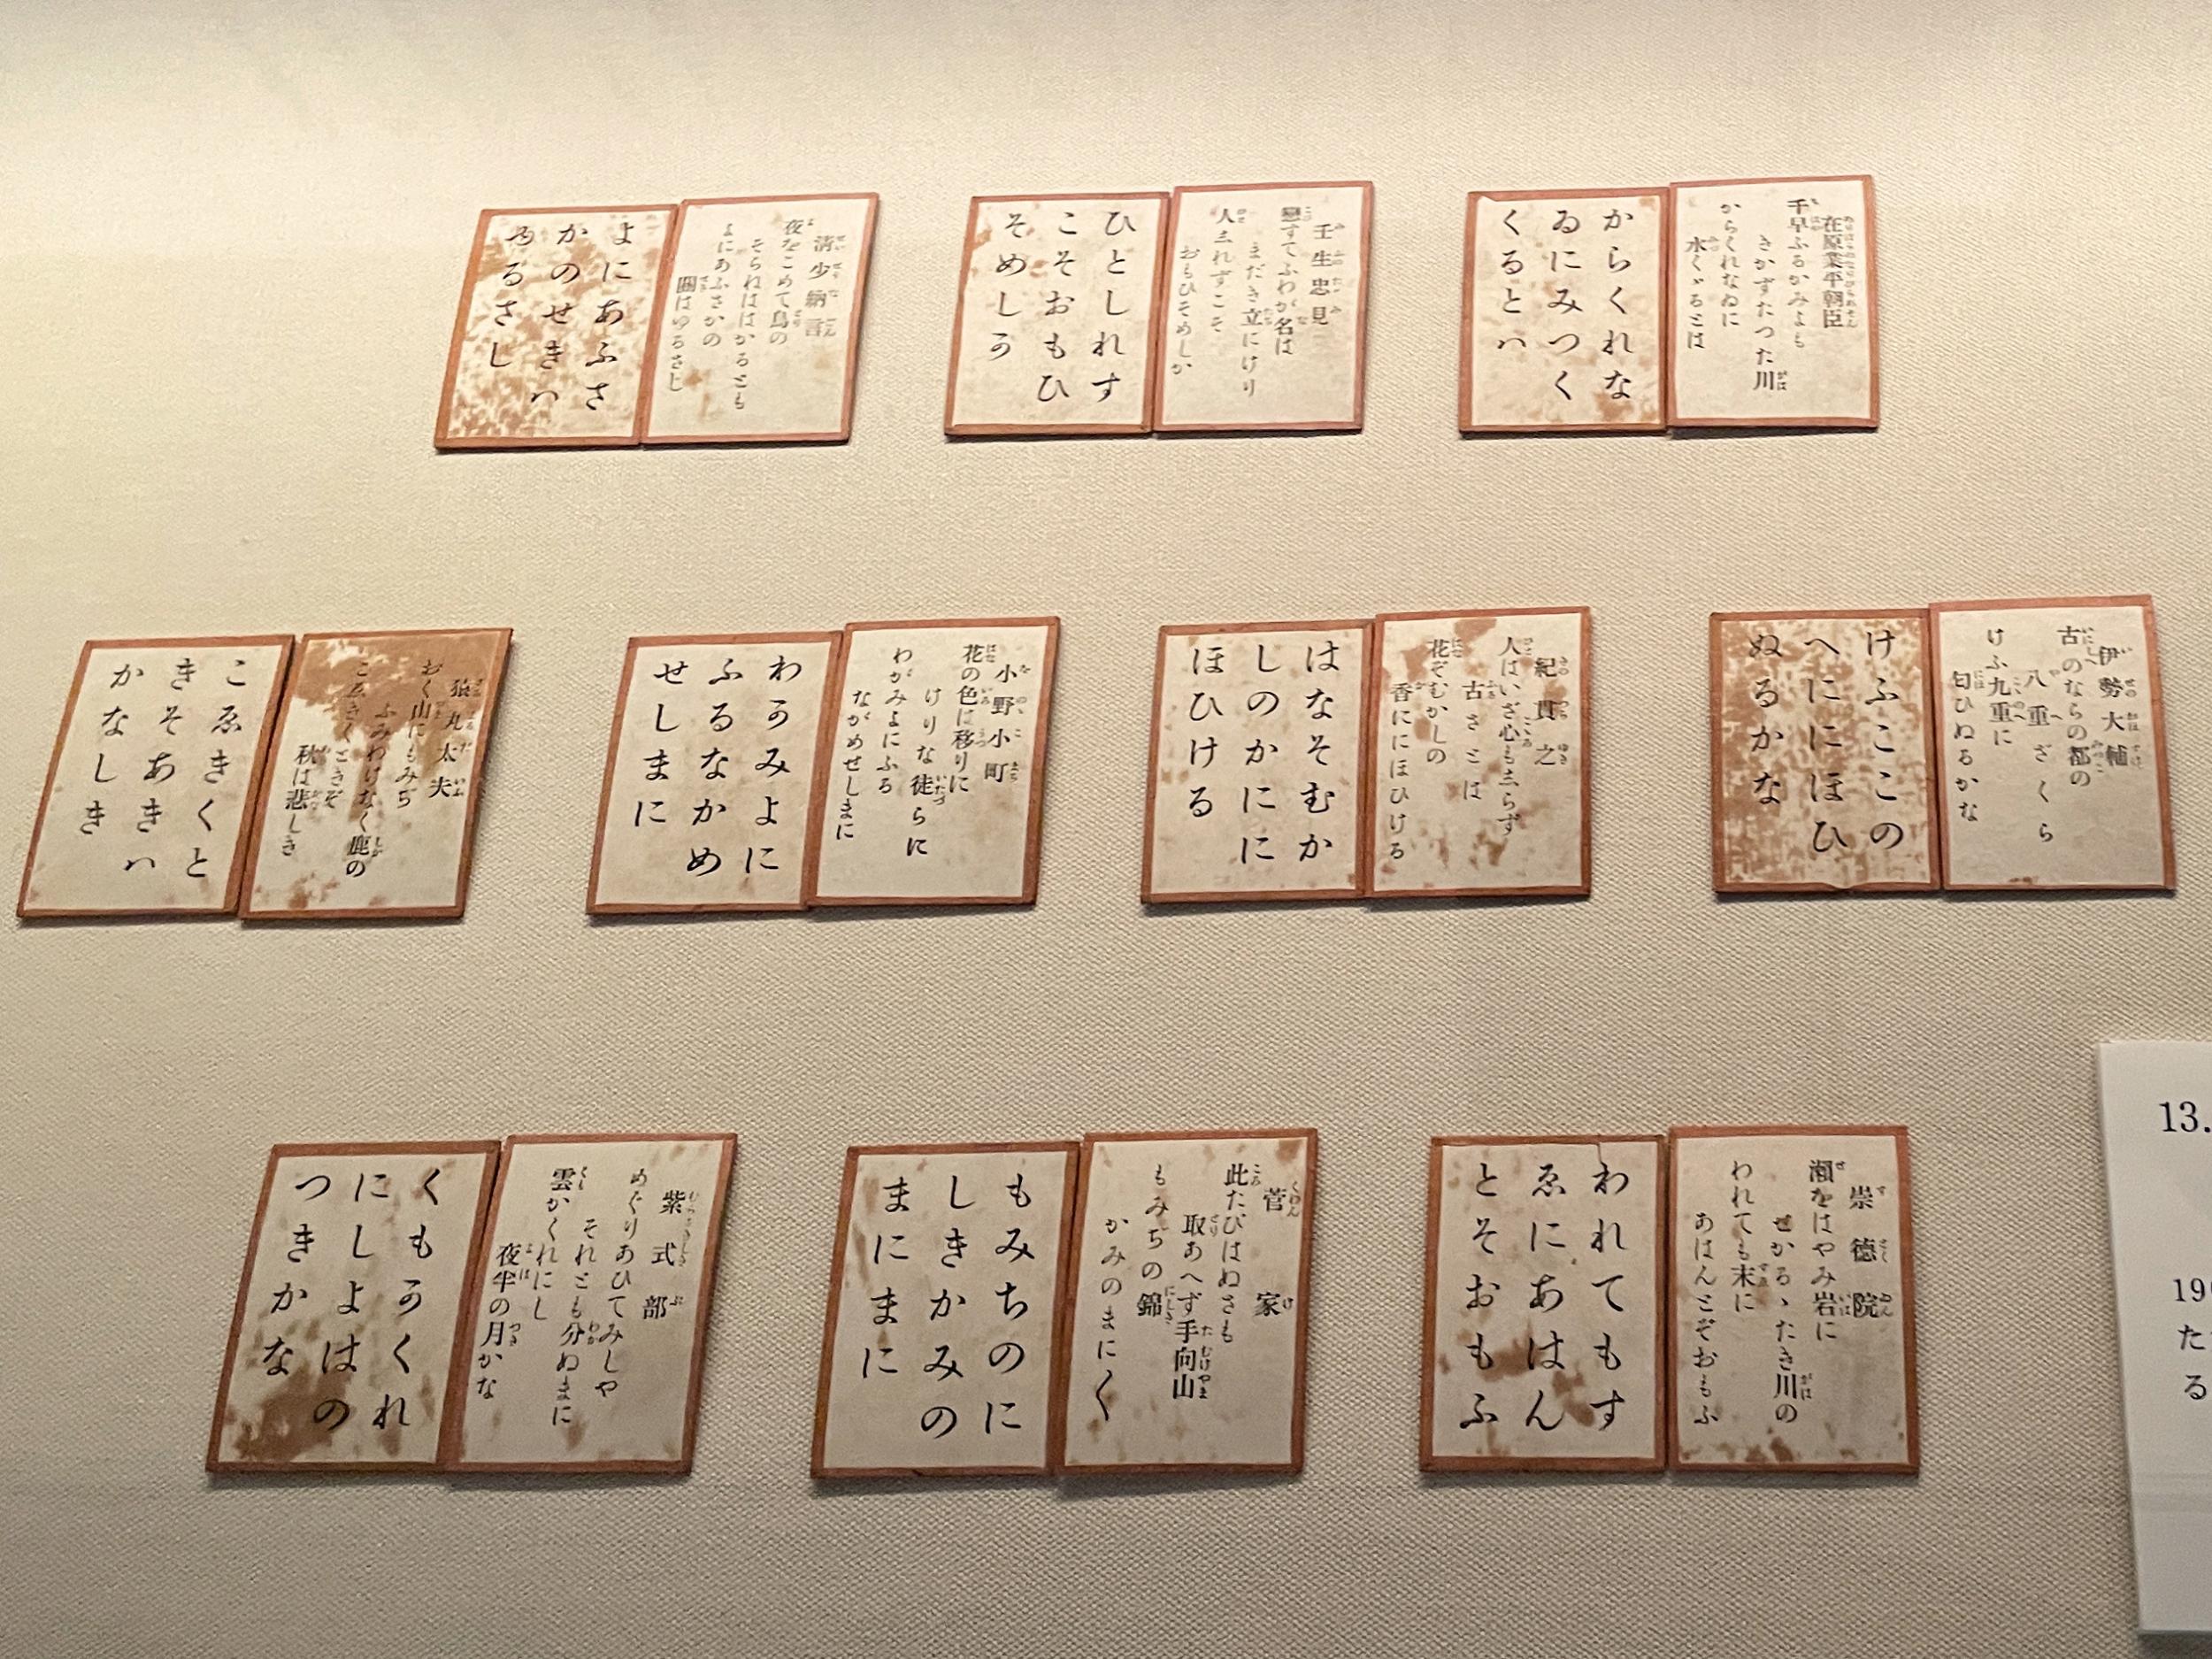 在原業平朝臣
千早ふるかみよも
きかずたつた川
からくれなゐに
水くゞるとは
からくれな
ゐにみつく
くるとハ
壬生忠見
戀すてふわが名は
まだき立にけり
人志れずこそ
おもひそめしか
ひとしれす
こそおもひ
そめしか
清少納言
夜をこめて鳥の
そらねははかるとも
よにあふさかの
關はゆるさじ
よにあふさ
かのせきハ
ゆるさし
伊勢大輔
古のならの都の
八重ざくら
けふ九重に
匂ひぬるかな
けふここの
へににほひ
ぬるかな
紀貫之
人はいざ心も志らず
古さとは
花ぞむかしの
香ににほひける
はなそむか
しのかにに
ほひける
小野小町
花の色は移りに
けりな徒らに
わがみよにふる
ながめせしまに
わかみよに
ふるなかめ
せしまに
猿丸太夫
おく山にもみぢ
ふみわけなく鹿の
こゑきくときぞ
秋は悲しき
こゑきくと
きそあきハ
かなしき
崇德院
瀬をはやみ岩に
せかるゝたき川の
われても末に
あはんとぞおもふ
われてもす
ゑにあはん
とそおもふ
菅家
此たびはぬさも
取あへず手向山
もみぢの錦
かみのまに〱
もみちのに
しきかみの
まにまに
紫式部
めぐりあひてみしや
それとも分ぬまに
雲かくれにし
夜半の月かな
くもかくれ
にしよはの
つきかな
13.
19
た
る